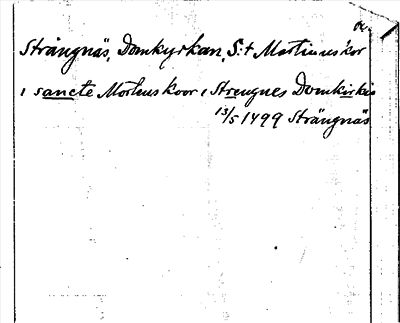 Strängnäs, Domkyrkan, S:t Martinus kor
i sancte Mortens koor i Strengnes Domkirkio
13/5 1499 Strängnäs